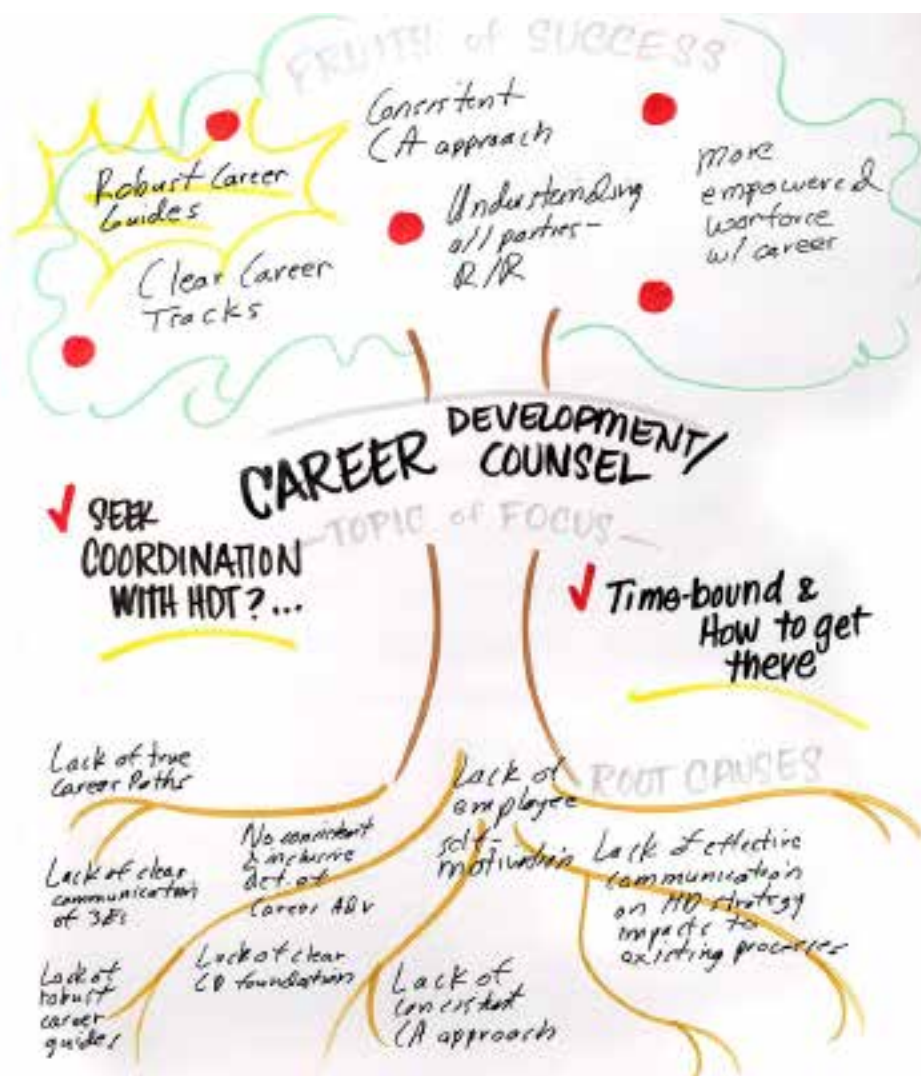 FRUITS of SUCCESS
Robust Career
Guides
Clear Career
Tracks
Consistent
CA approach
Understanding
all parties-
R/R
More
empowered
workforce
w/ career
CAREER DEVELOPMENT/
COUNSEL
-TOPIC of FOCUS-
✓ SEEK
COORDINATION
WITH HDT?...
✓ Time-bound &
How to get
there
ROOT CAUSES
Lack of true
Career Paths
Lack of clear
communication
of 3Es
Lack of
robust
career
guides
No consistent
& inclusive
def. of
Career Adv
Lack of clear
CD foundation
Lack of
employee
self-
motivation
Lack of
consistent
CA approach
Lack of effective
communication
on HD strategy
impacts to
existing processes